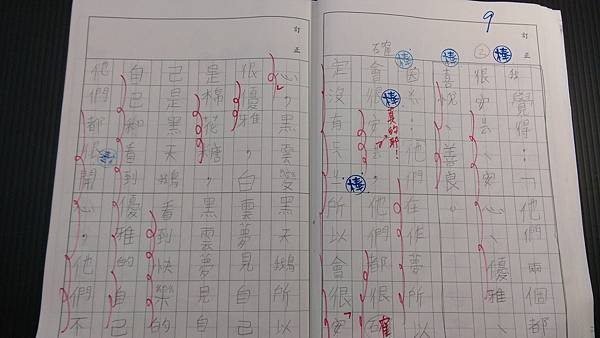 9
訂正
②
我覺得：「他們兩個都
很安去、安心、優雅、
喜悅、善良。
因為：他們在作夢所以
會很安心，他們都確
真的耶！
確
定沒有失去所以會很安
訂正
心，黑雲變黑天鵝所以
很優雅，白雲夢見自己
是棉花糖，黑雲夢見自
己是黑天鵝看到快樂的
自己和看到優雅的自己
他們都很開心，他們不